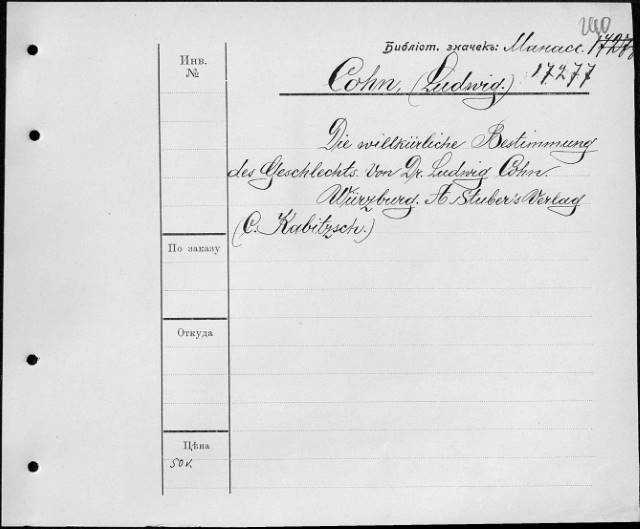 Библіот. значекъ: Манасс.
17277
Инв.
№
Cohn, (Ludwig.)
Die willkürliche Bestimmung
des Geschlechts. Von Dr. Ludwig Cohn.
Würzburg. A. Stuber's Verlag
(C. Kabitzsch.)
По заказу
Откуда
Цѣна
50 к.